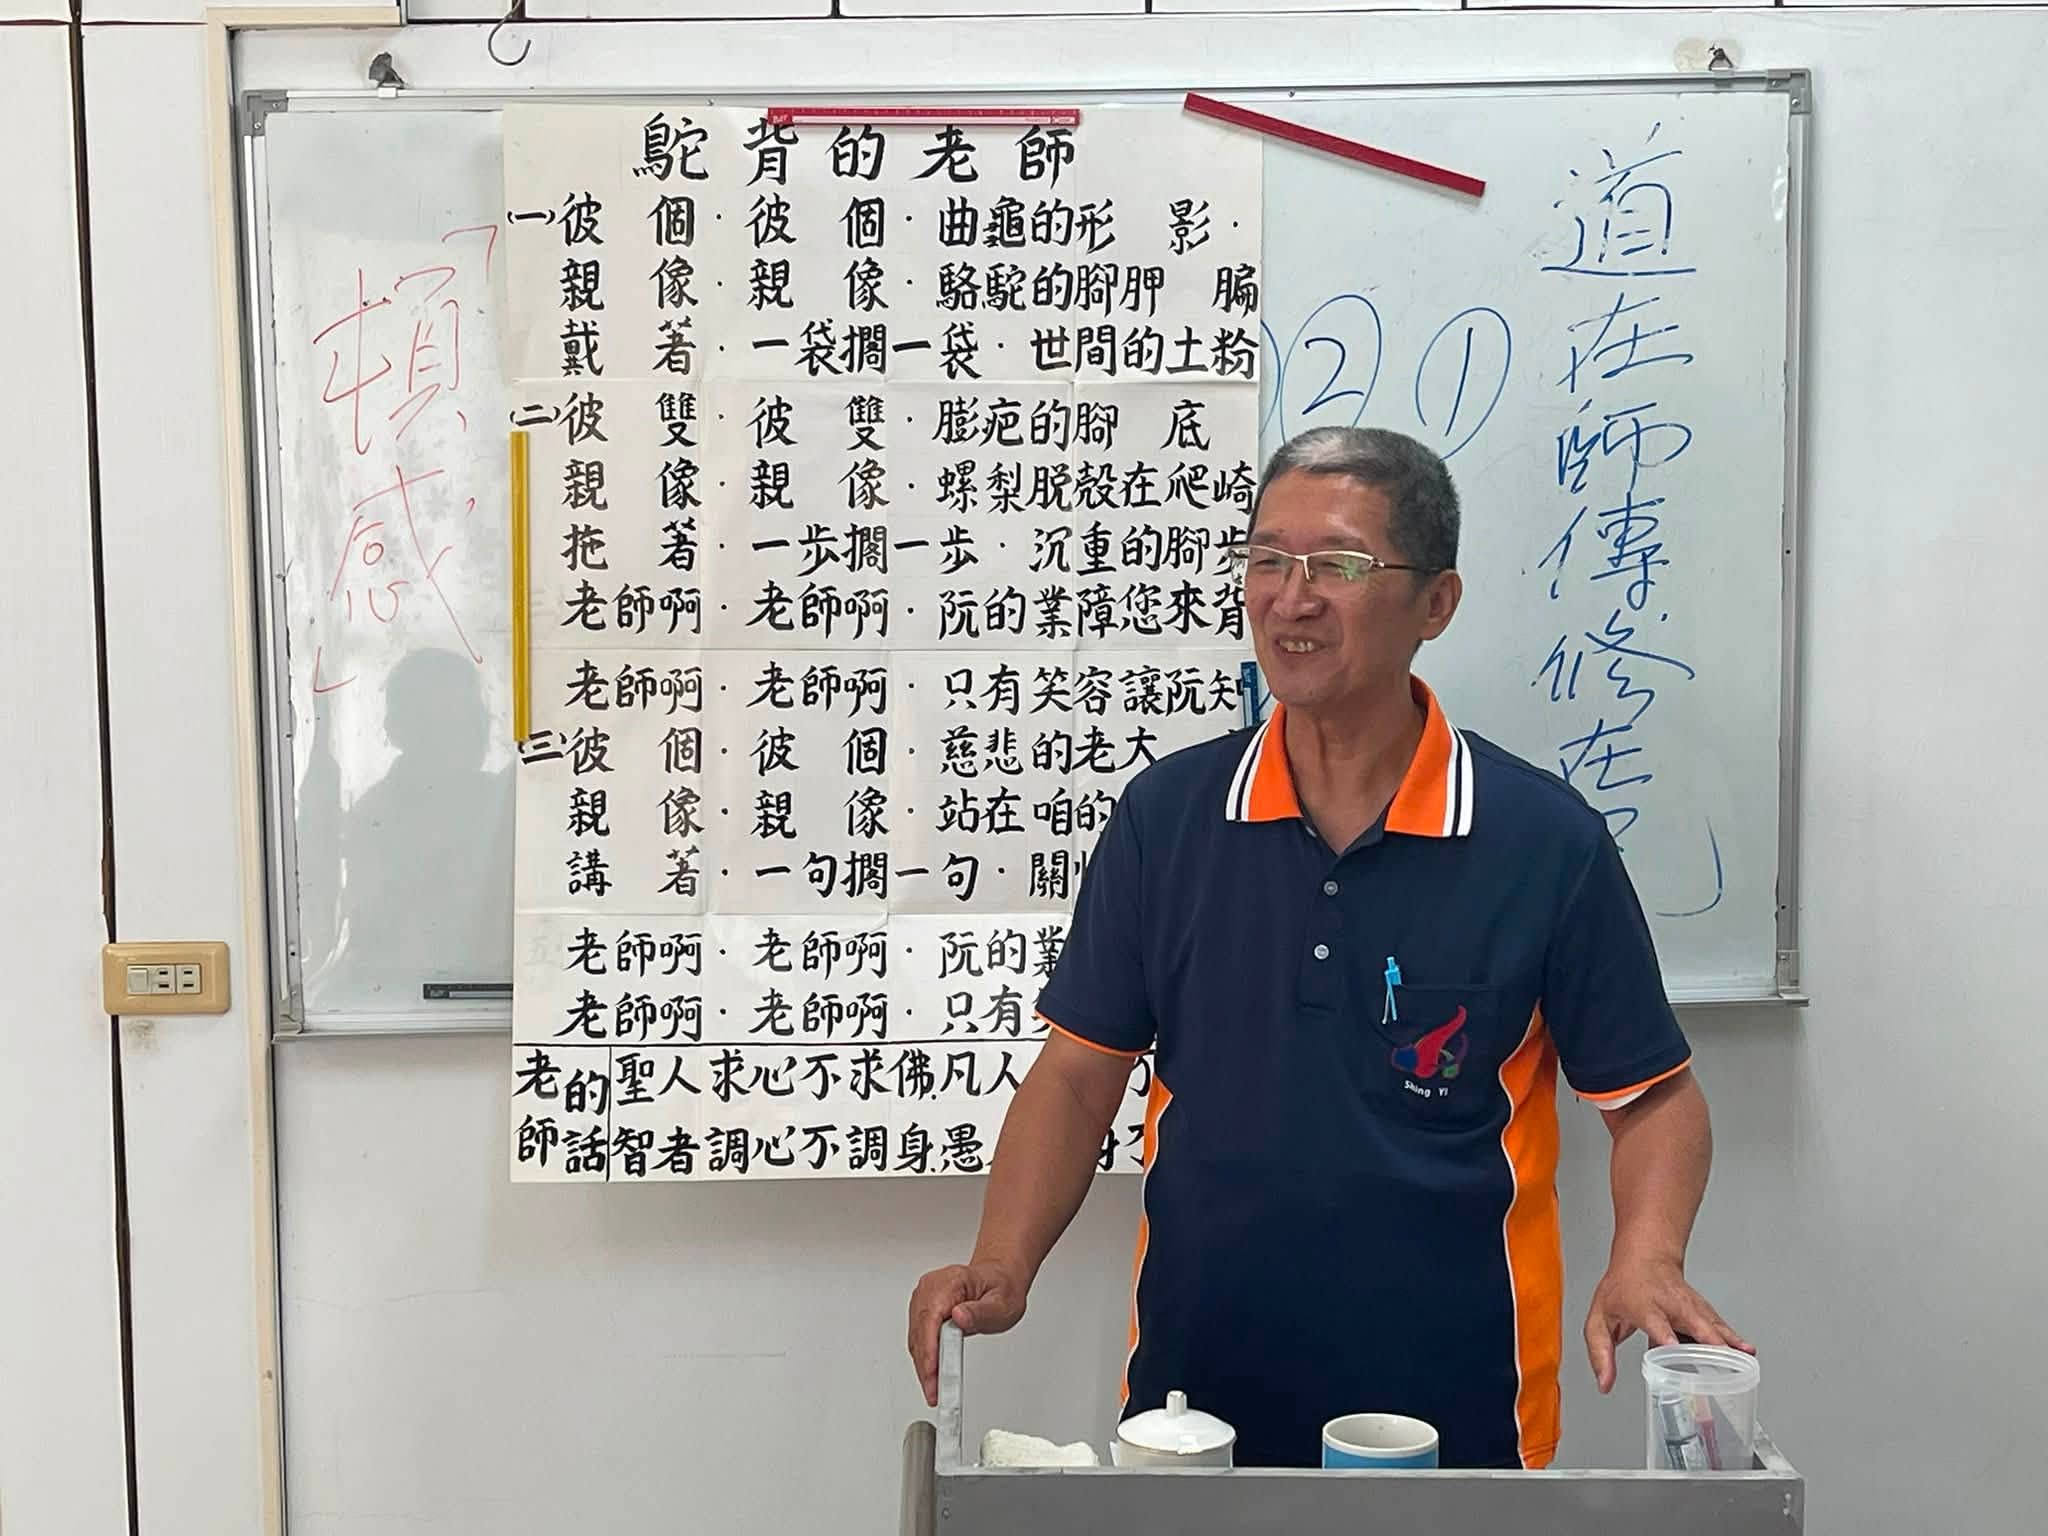 鴕背的老師
(一)彼個·彼個·曲龜的形影·
親像·親像·駱駝的腳胛騙
戴著·一袋擱一袋·世間的土粉
(二)彼雙·彼雙·膨疤的腳底
親像·親像·螺梨脱殼在爬崎
拖著·一步擱一步·沉重的腳步
老師啊·老師啊·阮的業障您來背
老師啊·老師啊·只有笑容讓阮知
(三)彼個·彼個·慈悲的老大
親像·親像·站在咱的
講著·一句擱一句·關
老師啊·老師啊·阮的業
老師啊·老師啊·只有
老師的話
聖人求心不求佛.凡人
智者調心不調身.愚
道在師傳修在
①
②
「
感
」
Shing Yi